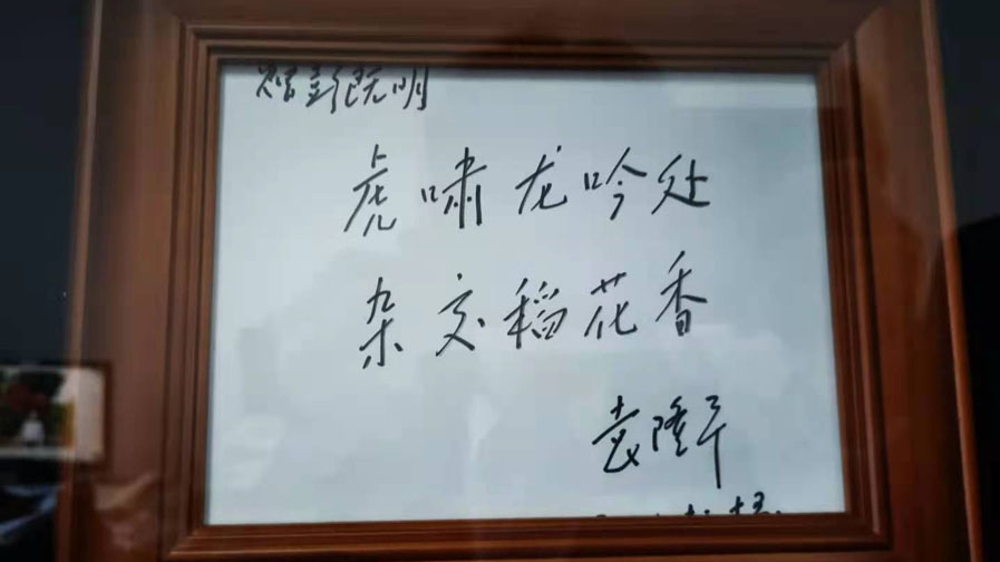 赠彭既明
虎啸龙吟处
杂交稻花香
袁隆平